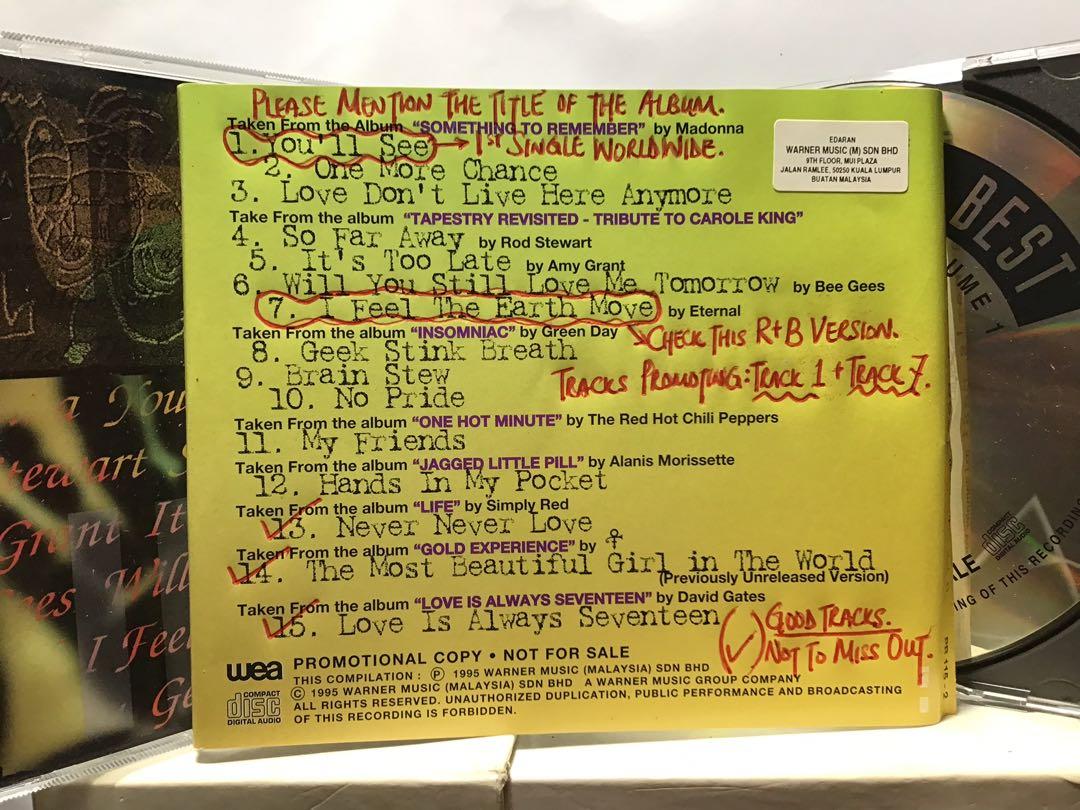 PLEASE MENTION THE TITLE OF THE ALBUM.
Taken From the Album “SOMETHING TO REMEMBER” by Madonna
1. You'll See → 1ST SINGLE WORLDWIDE.
2. One More Chance
3. Love Don't Live Here Anymore
EDARAN
WARNER MUSIC (M) SDN BHD
9TH FLOOR, MUI PLAZA
JALAN RAMLEE, 50250 KUALA LUMPUR
BUATAN MALAYSIA
Take From the album “TAPESTRY REVISITED - TRIBUTE TO CAROLE KING”
4. So Far Away by Rod Stewart
5. It's Too Late by Amy Grant
6. Will You Still Love Me Tomorrow by Bee Gees
7. I Feel The Earth Move by Eternal
CHECK THIS R+B VERSION.
Taken From the album “INSOMNIAC” by Green Day
8. Geek Stink Breath
9. Brain Stew
10. No Pride
TRACKS PROMOTING: TRACK 1 + TRACK 7.
Taken From the album “ONE HOT MINUTE” by The Red Hot Chili Peppers
11. My Friends
Taken From the album “JAGGED LITTLE PILL” by Alanis Morissette
12. Hands In My Pocket
Taken From the album “LIFE” by Simply Red
13. Never Never Love
Taken From the album “GOLD EXPERIENCE” by
14. The Most Beautiful Girl in The World
(Previously Unreleased Version)
Taken From the album “LOVE IS ALWAYS SEVENTEEN” by David Gates
15. Love Is Always Seventeen
(✓) GOOD TRACKS.
NOT TO MISS OUT.
wea
PROMOTIONAL COPY • NOT FOR SALE
THIS COMPILATION : Ⓟ 1995 WARNER MUSIC (MALAYSIA) SDN BHD
© 1995 WARNER MUSIC (MALAYSIA) SDN BHD A WARNER MUSIC GROUP COMPANY
ALL RIGHTS RESERVED. UNAUTHORIZED DUPLICATION, PUBLIC PERFORMANCE AND BROADCASTING
OF THIS RECORDING IS FORBIDDEN.
COMPACT
disc
DIGITAL AUDIO
You
Stewart
Grant It
Will
I Feel
Ge
BEST
UME 1
COMPACT
disc
DIGITAL AUDIO
ING OF THIS RECORDIN